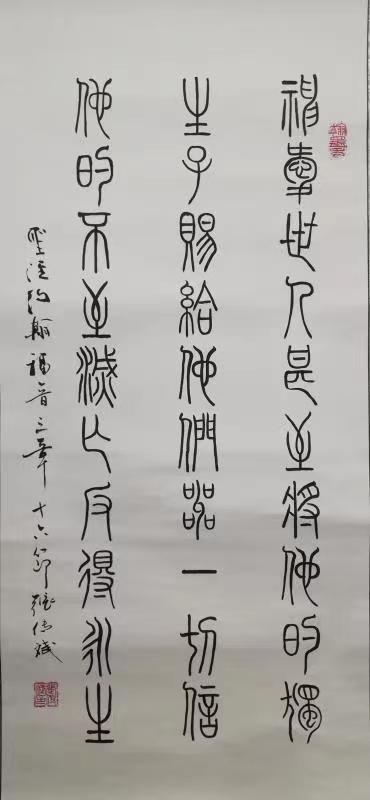 神愛世人甚至將他的獨
生子賜給他們嘂一切信
他的不至滅亡反得永生
聖經約翰福音三章十六節 張